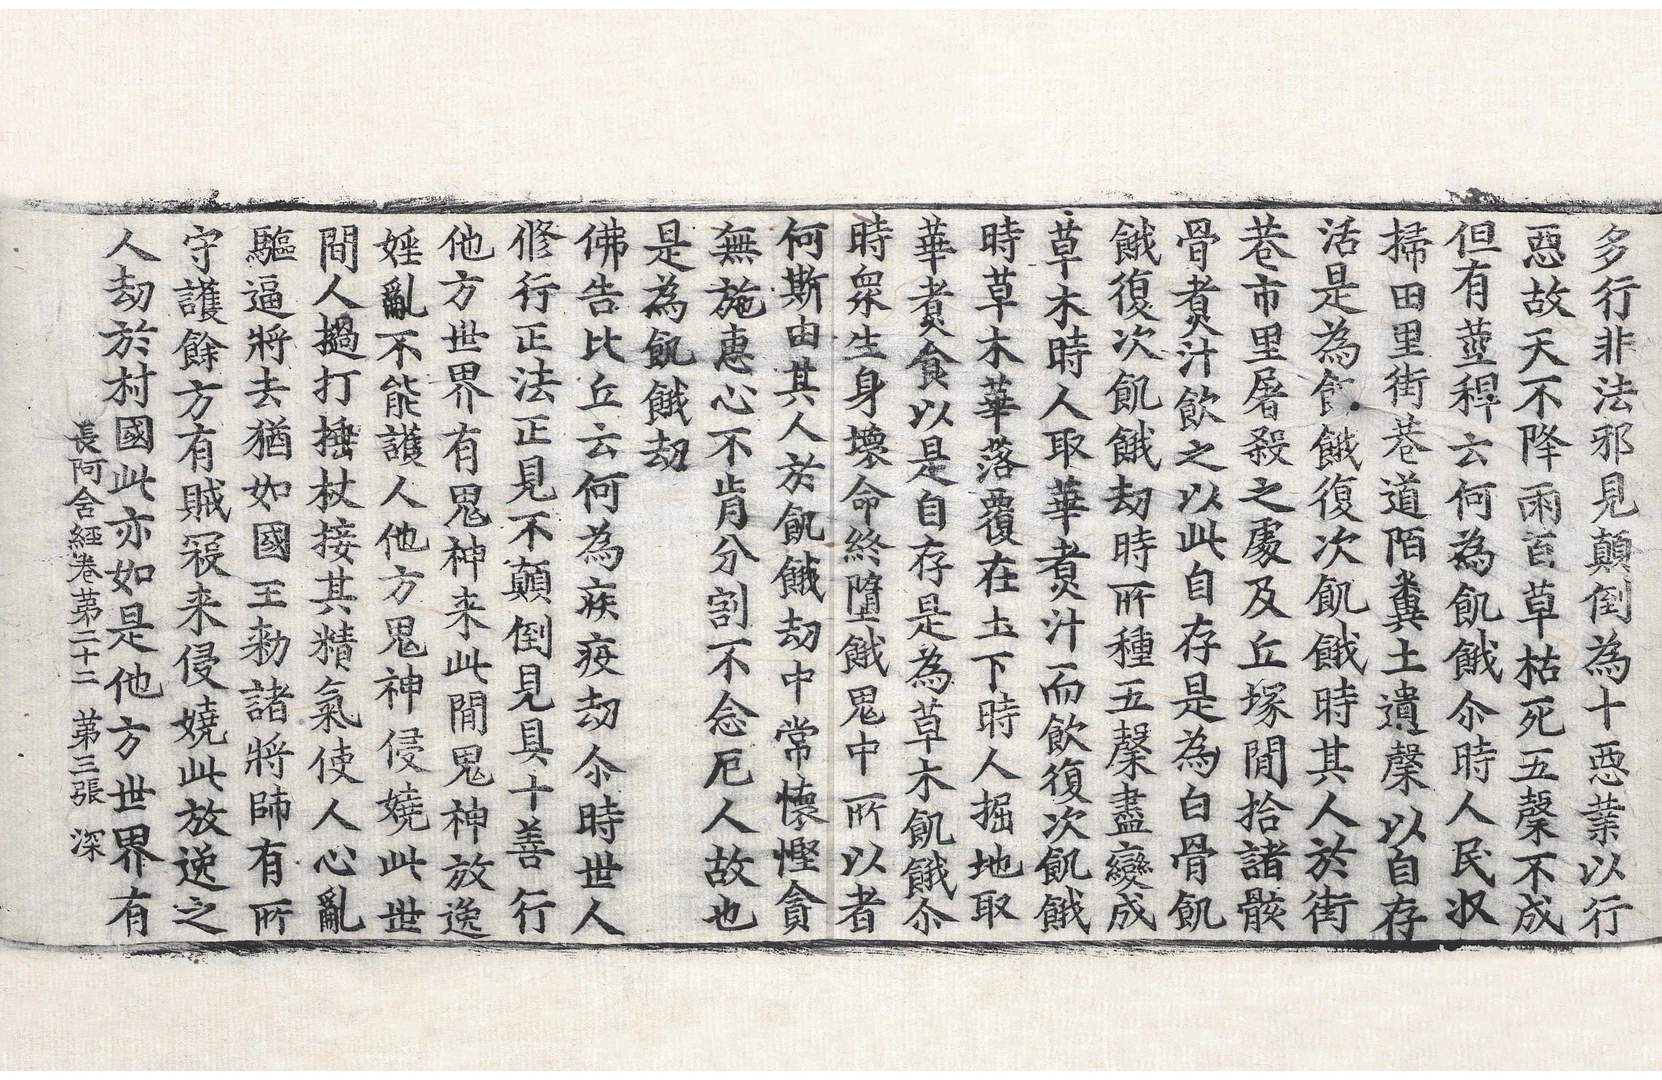 多行非法邪見顛倒為十惡業以行
惡故天不降雨百草枯死五糓不成
但有莖稈云何為飢餓尒時人民收
掃田里街巷道陌糞土遺糓以自存
活是為飢餓復次飢餓時其人於街
巷市里屠殺之處及丘塚間拾諸骸
骨煮汁飲之以此自存是為白骨飢
餓復次飢餓劫時所種五糓盡變成
草木時人取華煮汁而飲復次飢餓
時草木華落覆在土下時人掘地取
華煮食以是自存是為草木飢餓尒
時衆生身壞命終墮餓鬼中所以者
何斯由其人於飢餓劫中常懷慳貪
無施惠心不肯分割不念厄人故也
是為飢餓劫
佛告比丘云何為疾疫劫尒時世人
修行正法正見不顛倒見具十善行
他方世界有鬼神来此間鬼神放逸
婬亂不能護人他方鬼神侵嬈此世
間人撾打捶杖接其精氣使人心亂
驅逼將去猶如國王勑諸將帥有所
守護餘方有賊寇来侵嬈此放逸之
人劫於村國此亦如是他方世界有
長阿含經卷第二十二 第三張 深